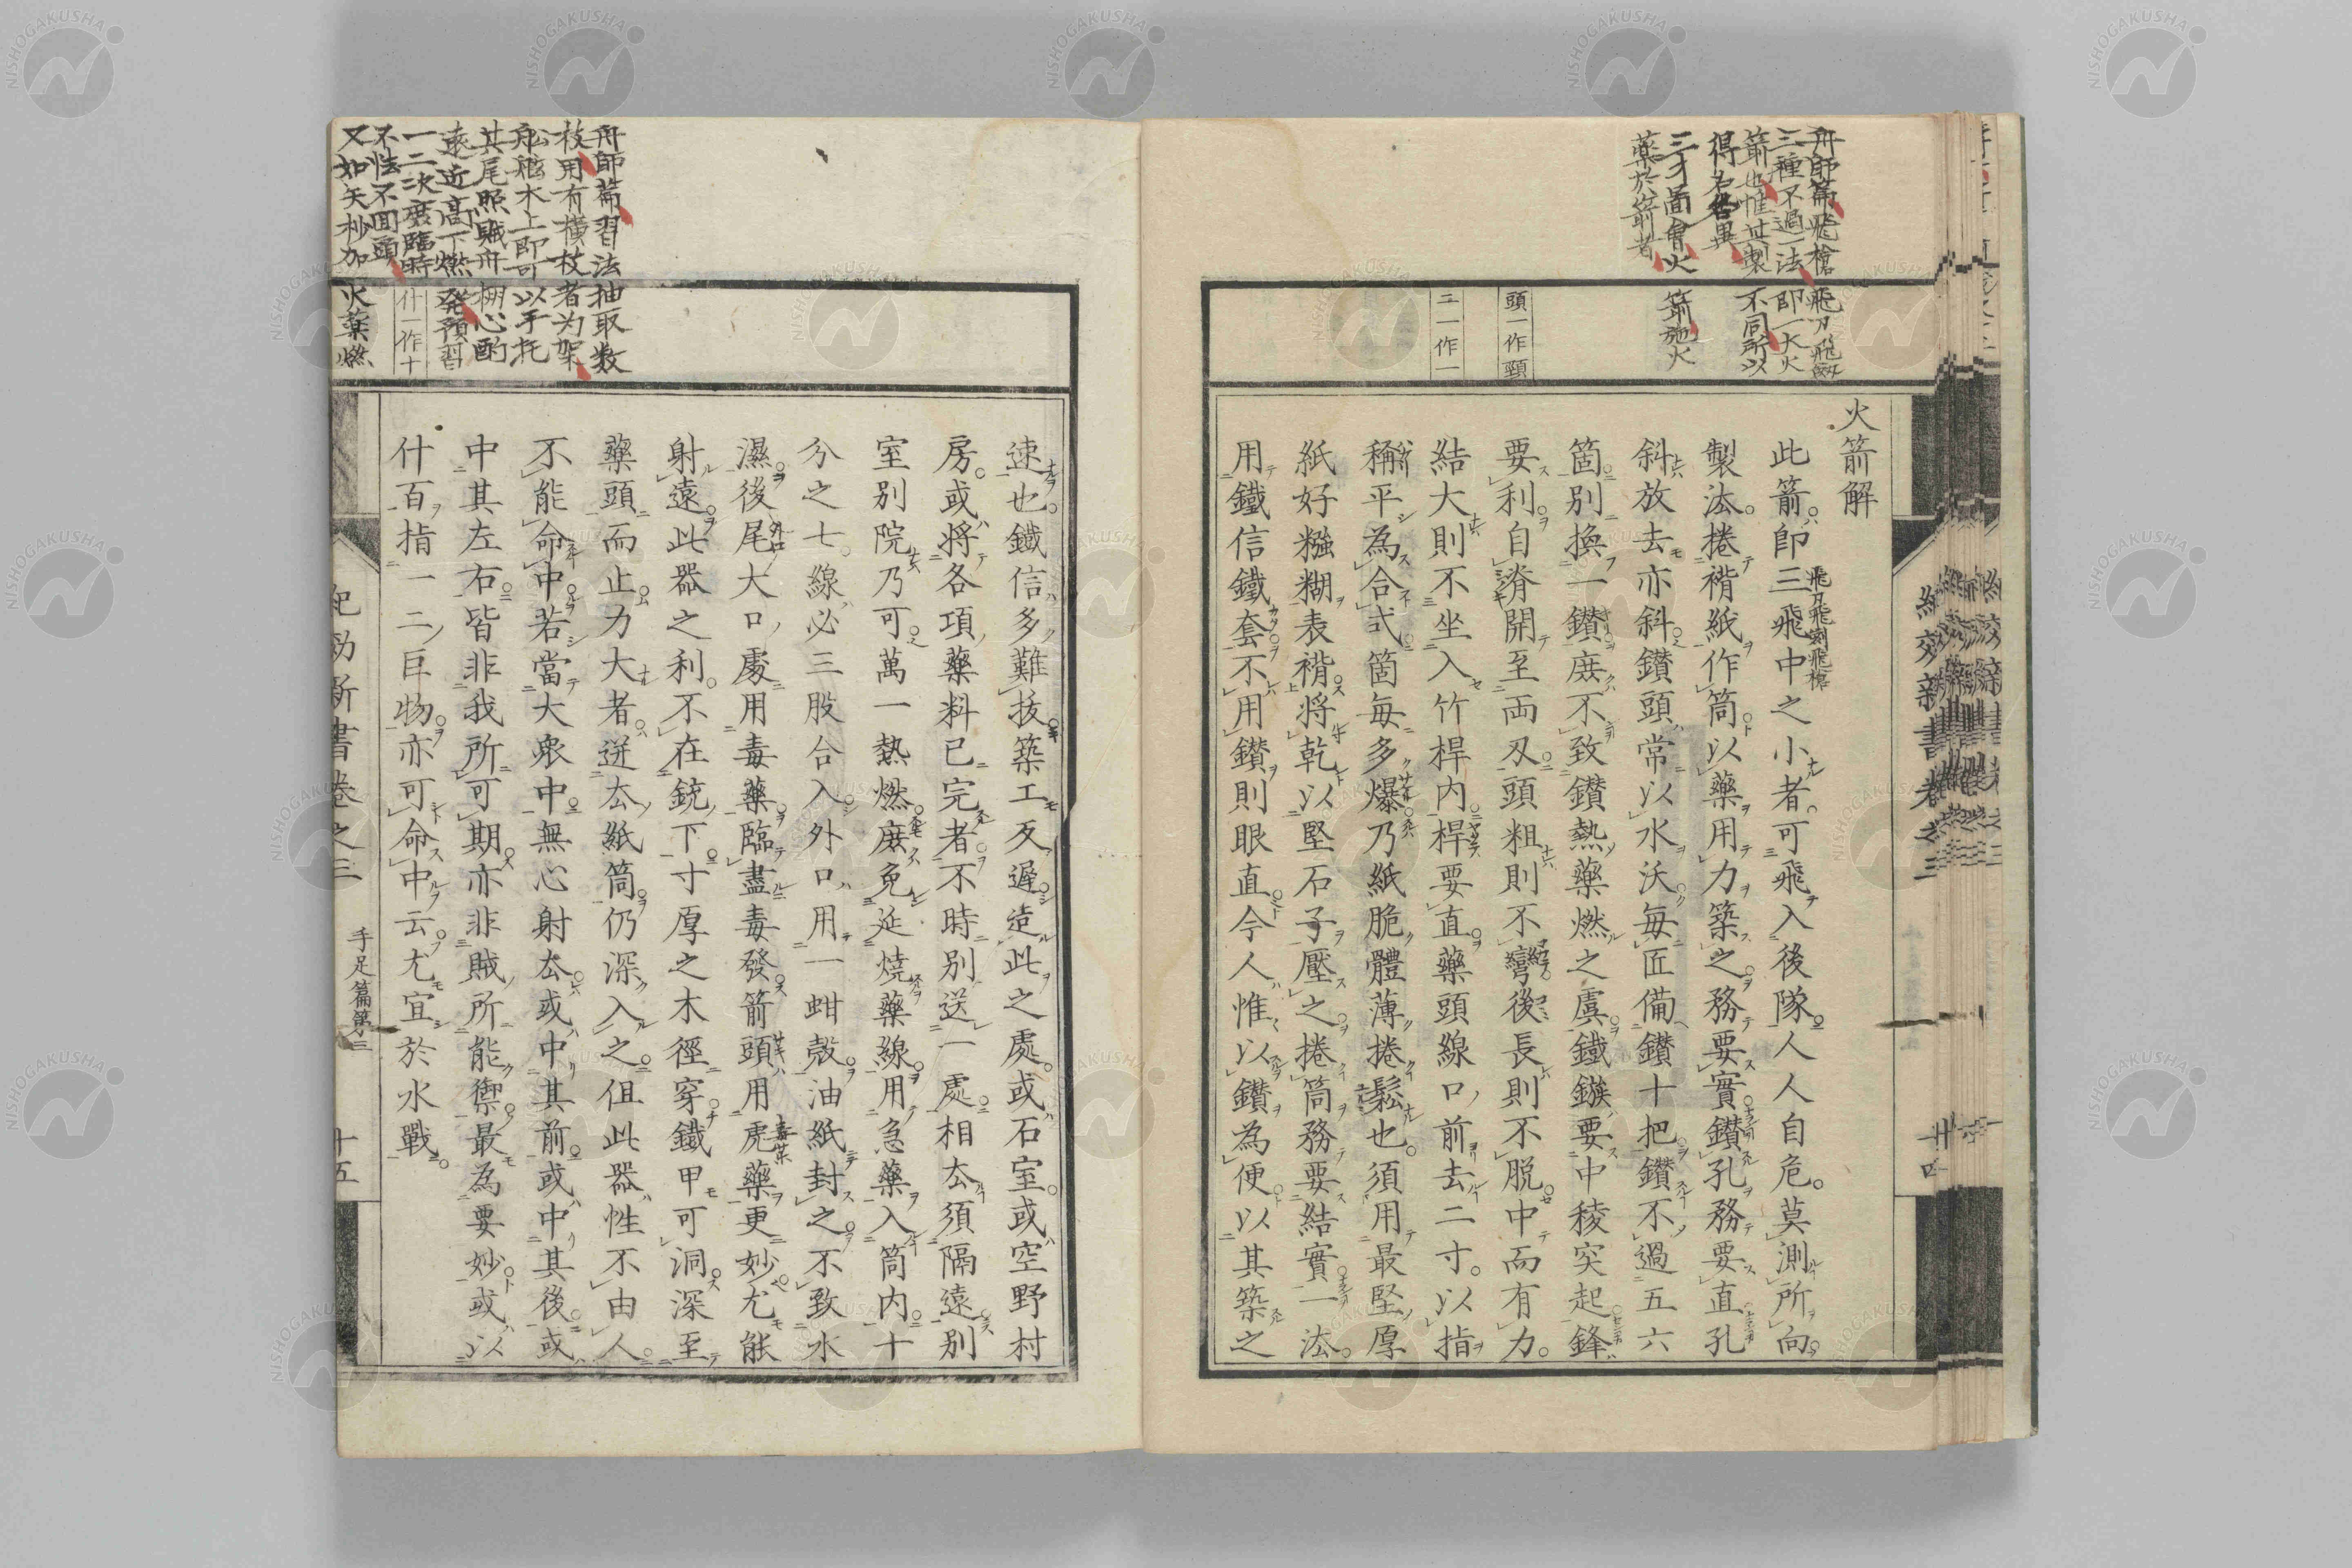 火箭解
此箭即三飛中之小者可飛入後隊人人自危莫測所向
製法捲褙紙作筒以藥用力築之務要實鑽孔務要直孔
斜放去亦斜鑽頭常以水沃每匠備鑽十把鑽不過五六
箇別換一鑽庶不致鑽熱藥燃之虞鐵鏃要中稜突起鋒
要利自脊開至両刄頭粗則不彎後長則不脱中而有力
結大則不坐入竹桿内桿要直藥頭線口前去二寸以指
稱平為合式箇每多爆乃紙脆體薄捲鬆也須用最堅厚
紙好糨糊表褙將乾以堅石子壓之捲筒務要結實一法
用鐵信鐵套不用鑽則眼直今人惟以鑽為便以其築之
舟師篇飛槍飛刀飛劔
三種不過一法即一大火
箭也惟其製不同所以
得名各異
三才圖會火箭施火
藥於箭者
頭一作頸
二一作一
飛刀飛劍飛槍
紀效新書卷之三
廿四
速也鐵信多難拔築工反遲造此之處或石室或空野村
房或將各項藥料已完者不時別送一處相去須隔遠別
室別院乃可萬一熱燃庶免延燒藥線用急藥入筒内十
分之七線必三股合入外口用一蚶殻油紙封之不致水
濕後尾大口處用毒藥臨盡毒發箭頭用虎藥更妙尤能
射遠此器之利不在銃下寸厚之木徑穿鐵甲可洞深至
藥頭而止力大者迸去紙筒仍深入之但此器性不由人
不能命中若當大衆中無心射去或中其前或中其後或
中其左右皆非我所可期亦非賊所能禦最為要妙或以
什百指一二巨物亦可命中云尤宜於水戰
舟師篇習法抽取数
枝用有横枝者为架
其尾照賊舟棚心酌
遠近高下燃發預習
一二次庶臨時
不怯不回頭
又如矢杪加火藥燃
什一作十
紀効新書卷之三
手足篇第三
十五